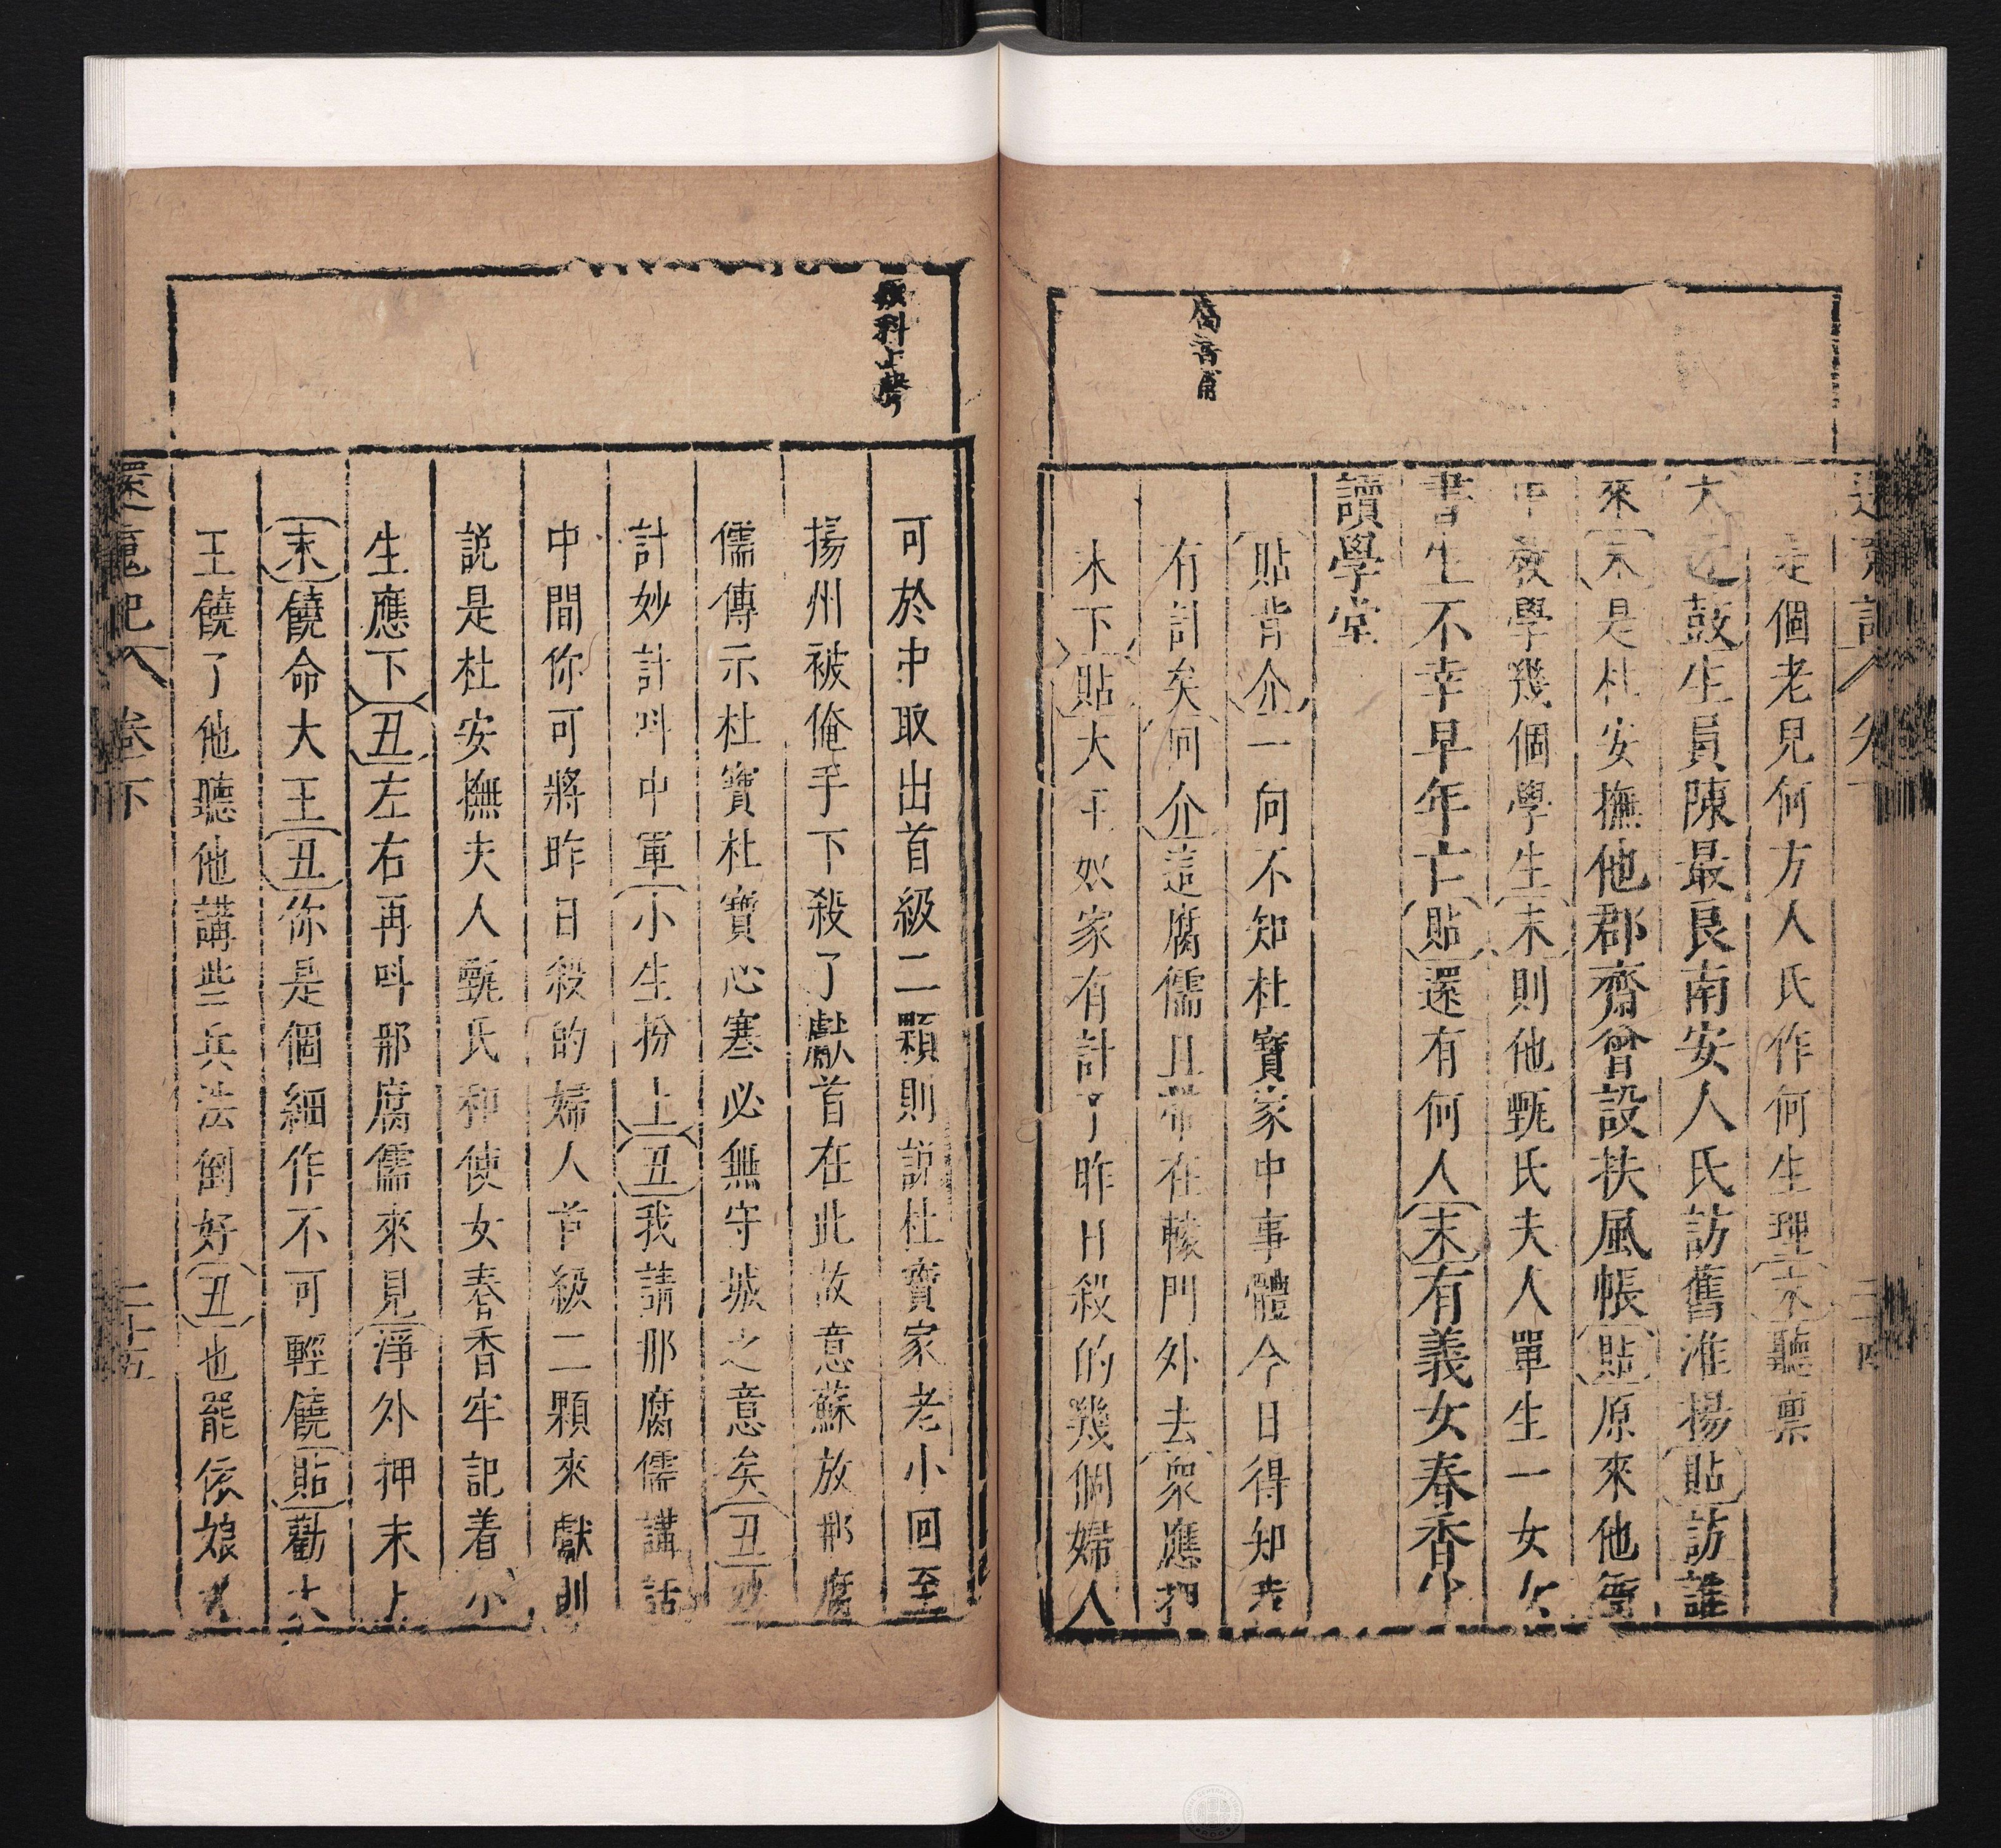 腐音甫
是個老兒何方人氏作何生理末聽禀
鼓生員陳最良南安人氏訪舊淮揚貼訪誰
來末是杜安撫他郡齋曾設扶風帳貼原來他衙
中教學幾個學生末則他甄氏夫人單生一女女
書生不幸早年亡貼還有何人末有義女春香少
讀學堂
貼背介一向不知杜寶家中事體今日得知吾
有計矣回介這腐儒且帶在轅門外去衆應押
末下貼大王奴家有計了昨日殺的幾個婦人
科上聲
可於中取出首級二顆則説杜寶家老小回至
揚州被俺手下殺了獻首在此故意蘇放那腐
儒傳示杜寶杜寶心寒必無守城之意矣丑妙
計妙計呌中軍小生扮上丑我請那腐儒講話
中間你可將昨日殺的婦人首級二顆來獻則
説是杜安撫夫人甄氏和使女春香牢記着小
生應下丑左右再呌那腐儒來見淨外押末上
末饒命大王丑你是個細作不可輕饒貼勸大
王饒了他聽他講些兵法倒好丑也罷依娘
還魂記卷下 二十五